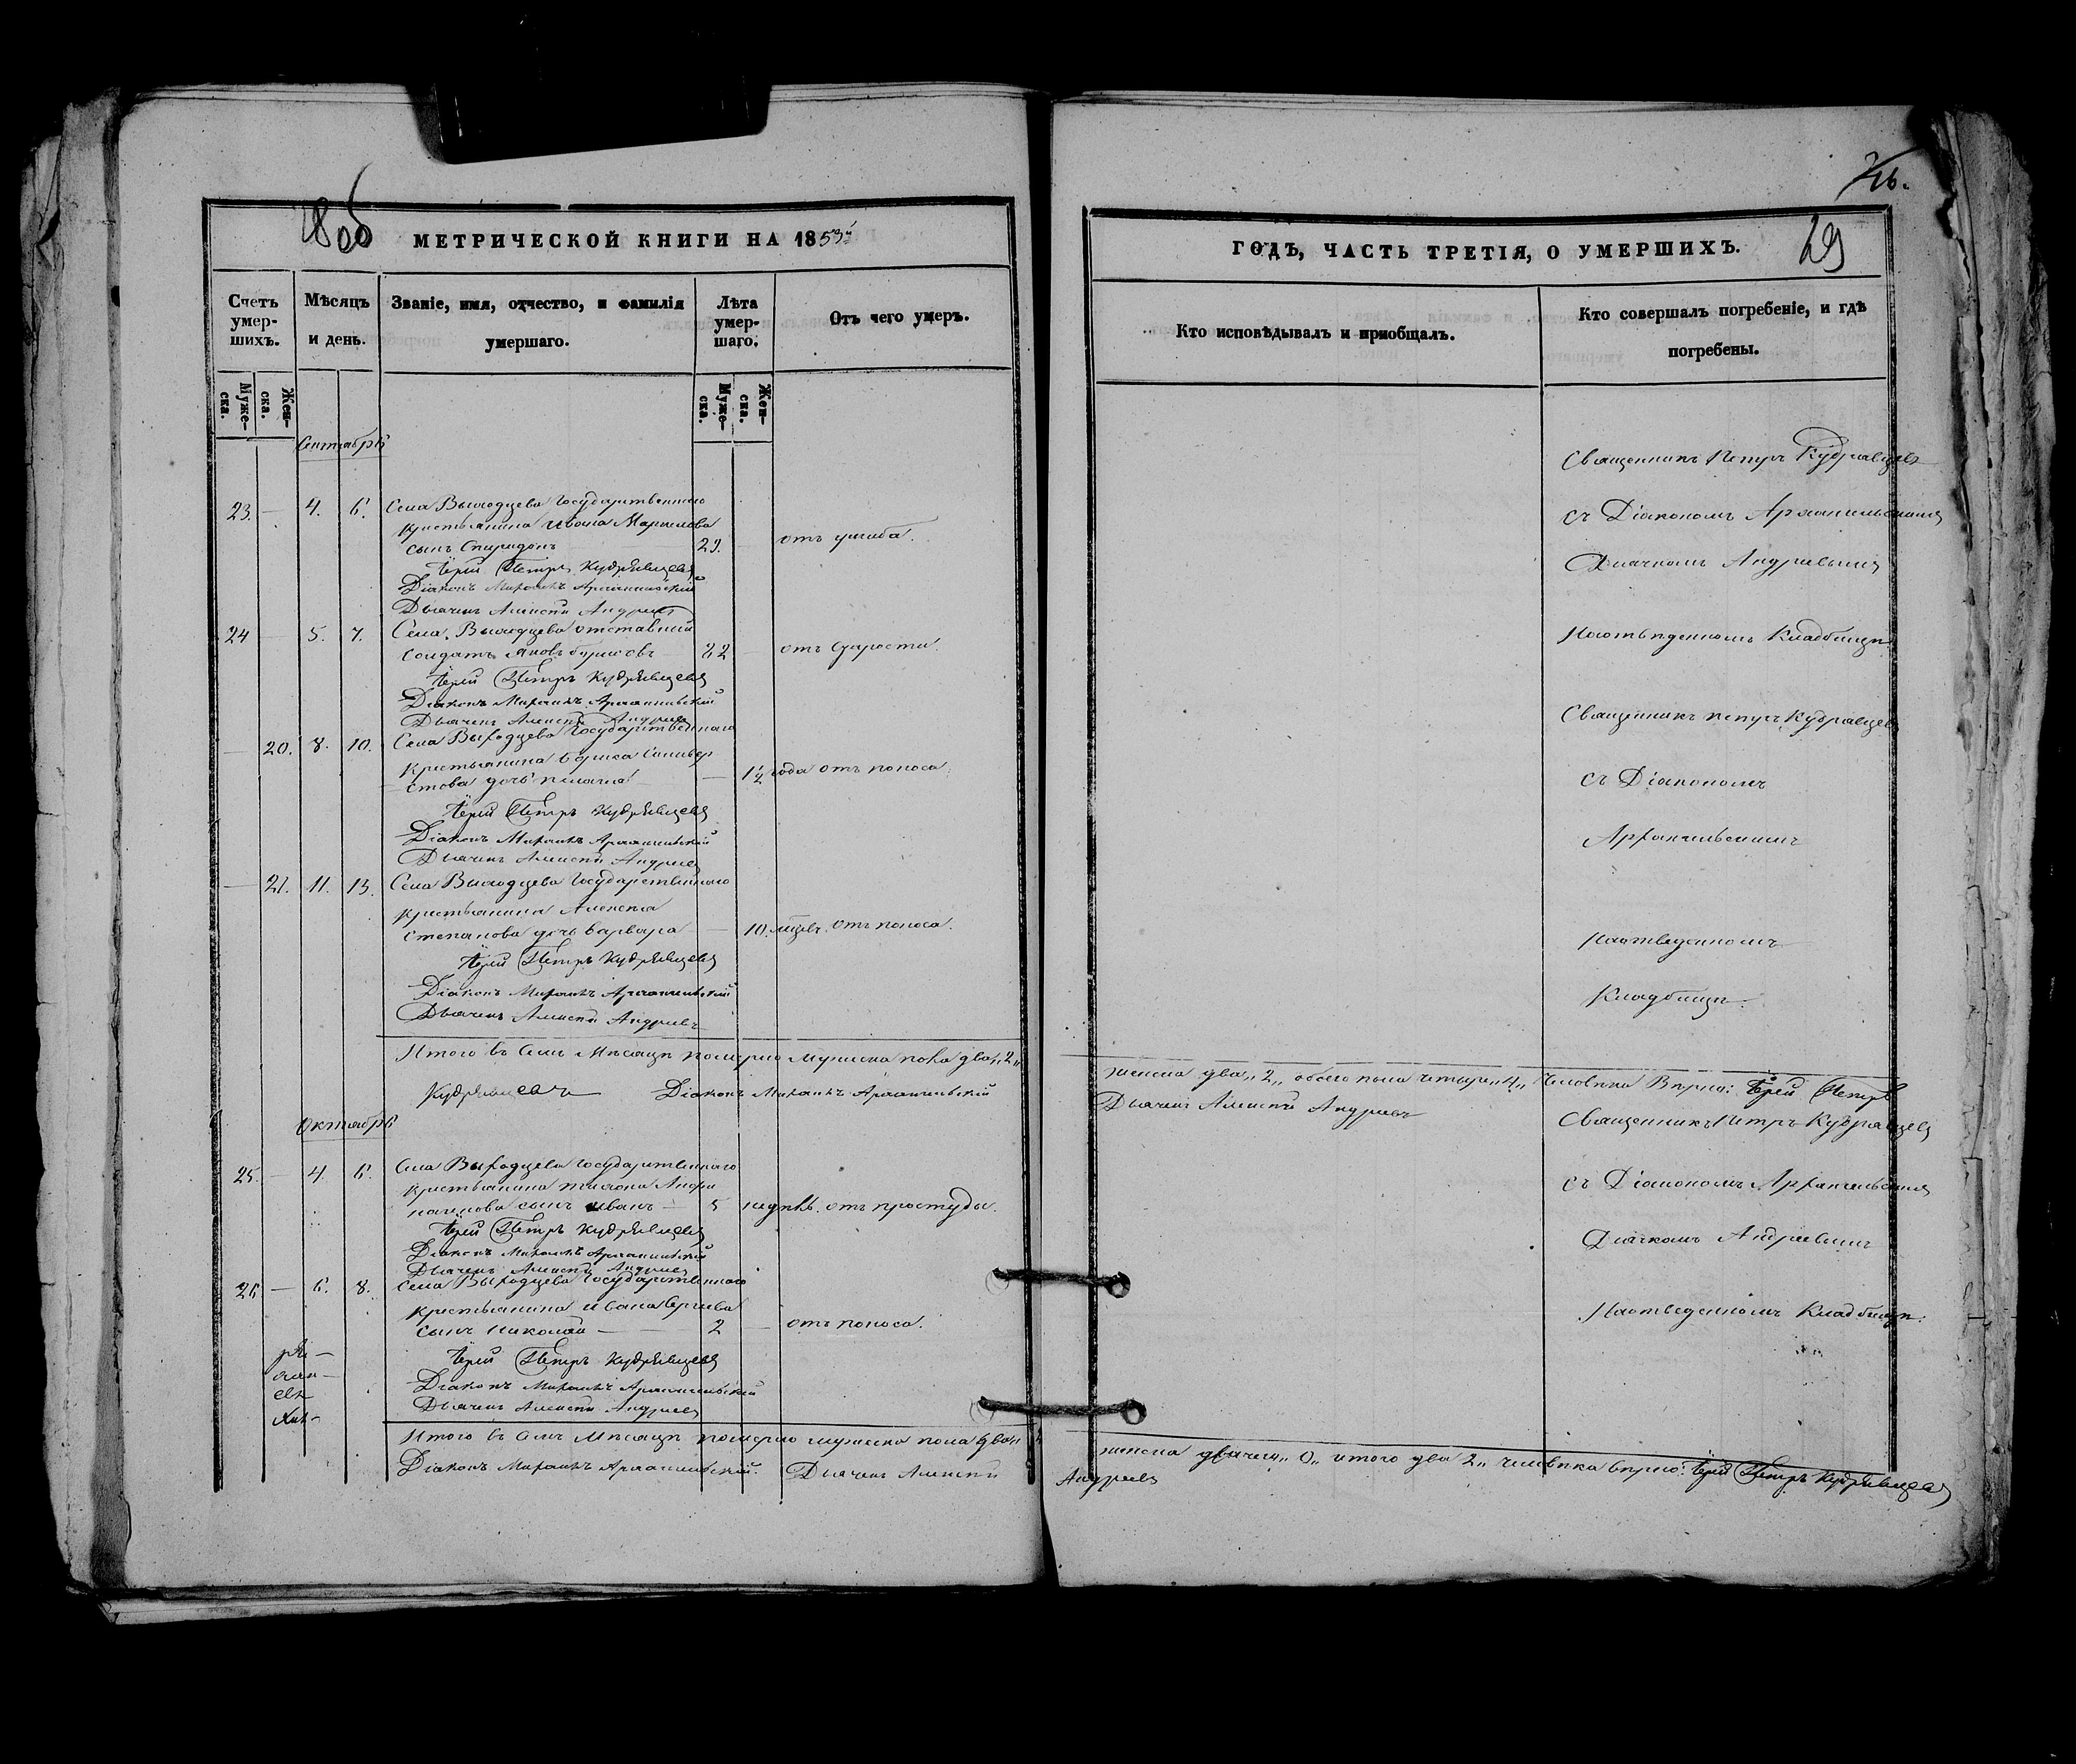 МЕТРИЧЕСКОЙ КНИГИ НА 1853й
Счетъ умер-шихъ.
Мѣсяцъ и день.
Званіе, имя, отчество, и фамилія умершаго.
Лѣта умер-шаго.
Отъ чего умеръ.
Муже-ска.
Жен-ска.
Муже-ска.
Жен-ска.
Сентябрь
23. — 4. 6. Села Выходцева Государственнаго
крестьянина Ивана
сынъ Спиридонъ 29. отъ ушиба.
Іерей Петръ Кудрявцевъ
Діаконъ Михаилъ Архангельскій
Дьячекъ Алексѣй Андреевъ
24 — 5. 7. Села Выходцева отставный
солдатъ Яковъ Борисовъ 82 — отъ старости.
Іерей Петръ Кудрявцевъ
Діаконъ Михаилъ Архангельскій
Дьячекъ Алексѣй Андреевъ
— 20. 8. 10. Села Выходцева Государственнаго
крестьянина Бориса Селивер
стова дочь — 1/2 года отъ поноса.
Іерей Петръ Кудрявцевъ
Діаконъ Михаилъ Архангельскій
Дьячекъ Алексѣй Андреевъ
— 21. 11. 13. Села Выходцева Государственнаго
крестьянина Алексѣя
Степанова дочь Варвара — 10. мѣсецъ. отъ поноса.
Іерей Петръ Кудрявцевъ
Діаконъ Михаилъ Архангельскій
Дьячекъ Алексѣй Андреевъ
Итого въ семъ мѣсяцѣ померло мужеска пола два „2„
Кудрявцевъ Діаконъ Михаилъ Архангельскій
Октябрь
25. — 4. 6. Села Выходцева Государственнаго
крестьянина
сынъ Иванъ — 5 недѣль. отъ простуды.
Іерей Петръ Кудрявцевъ
Діаконъ Михаилъ Архангельскій
Дьячекъ Алексѣй Андреевъ
26 — 6. 8. Села Выходцева Государственнаго
крестьянина Ивана Сергѣева
сынъ Николай — 2 — отъ поноса.
Іерей Петръ Кудрявцевъ
Діаконъ Михаилъ Архангельскій
Дьячекъ Алексѣй Андреевъ
Итого въ семъ мѣсяцѣ померло мужеска пола два „
Діаконъ Михаилъ Архангельскій. Дьячекъ Алексѣй
ГОДЪ, ЧАСТЬ ТРЕТІЯ, О УМЕРШИХЪ.
29
Кто исповѣдывалъ и пріобщалъ.
Кто совершалъ погребеніе, и гдѣ погребены.
Священникъ Петръ Кудрявцевъ
съ Діакономъ Архангельскимъ
Дьячкомъ Андреевымъ
На отведенномъ Кладбищѣ
Священникъ Петръ Кудрявцевъ
съ Діакономъ
Архангельскимъ
На отведенномъ
Кладбищѣ.
женска два „2„ обоего пола четыре „4„ человѣка Вѣрно: Іерей Петръ
Дьячекъ Алексѣй Андреевъ
Священникъ Петръ Кудрявцевъ
съ Діакономъ Архангельскимъ
Дьячкомъ Андреевымъ
На отведенномъ Кладбищѣ.
женска „0„ итого два 2„ человѣка вѣрно: Іерей Петръ Кудрявцевъ
Андреевъ